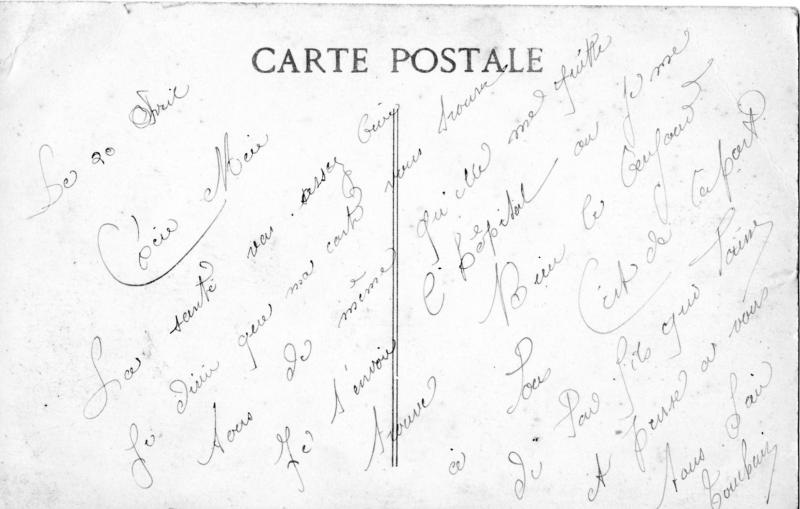 CARTE POSTALE
Le 20 Avril
Chère Mère
La santé vas assez bien
Je désire que ma carte vous trouve
tous de même qu'elle me quitte
Je t'envoie l'hôpital ou je me
trouve Bien le bonjour
à Tous C'est de la part
de Ton fils qui t'aime
et pense a vous
tous